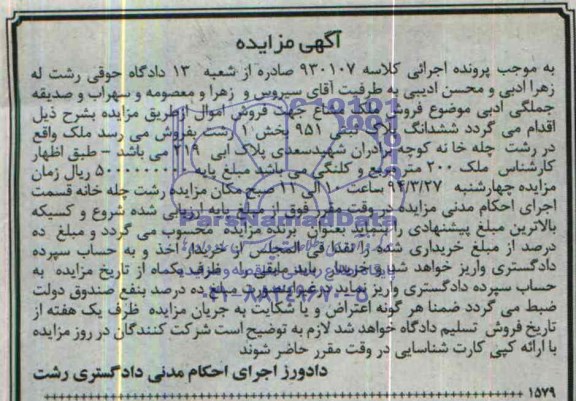 آگهی مزایده
به موجب پرونده اجرائی کلاسه ۹۳۰۱۰۷ صادره از شعبه ۱۳ دادگاه حوقی رشت له
زهرا ادبی و محسن ادیبی به طرفیت آقای سیروس و زهرا و معصومه و سهراب و صدیقه
جملگی ادبی موضوع فروش مشاع جهت فروش اموال ازطریق مزایده بشرح ذیل
اقدام می گردد ششدانگ پلاک ثبتی ۹۵۱ بخش ۱ رشت بفروش می رسد ملک واقع
در رشت چله خا نه کوچه برادران شهیدسعدی پلاک ابی ۲۱۹ می باشد - طبق اظهار
کارشناس ملک ۲۰۰ متر مربع و کلنگی می باشد مبلغ پایه ریال زمان
مزایده چهارشنبه ۹۴/۳/۲۷ ساعت ۱۰ الی ۱۱ صبح مکان مزایده رشت چله خانه قسمت
اجرای احکام مدنی مزایده در وقت مقرر فوق از مبلغ پایه ارزیابی شده شروع و کسیکه
بالاترین مبلغ پیشنهادی را بنماید بعنوان برنده مزایده محسوب می گردد و مبلغ ده
درصد از مبلغ خریداری شده را نقدا فی المجلس از خریدار اخذ و به حساب سپرده
دادگستری واریز خواهد شد و خریدار باید مابقی ظرف یکماه از تاریخ مزایده به
حساب سپرده دادگستری واریز نماید درغیر اینصورت مبلغ ده درصد بنفع صندوق دولت
ضبط می گردد ضمنا هر گونه اعتراض و یا شکایت به جریان مزایده ظرف یک هفته از
تاریخ فروش تسلیم دادگاه خواهد شد لازم به توضیح است شرکت کنندگان در روز مزایده
با ارائه کپی کارت شناسایی در وقت مقرر حاضر شوند
دادورز اجرای احکام مدنی دادگستری رشت
۱۵۷۹
ParsNamadData
۰۲۱-۸۸۳۴۹۶۷۰-۵